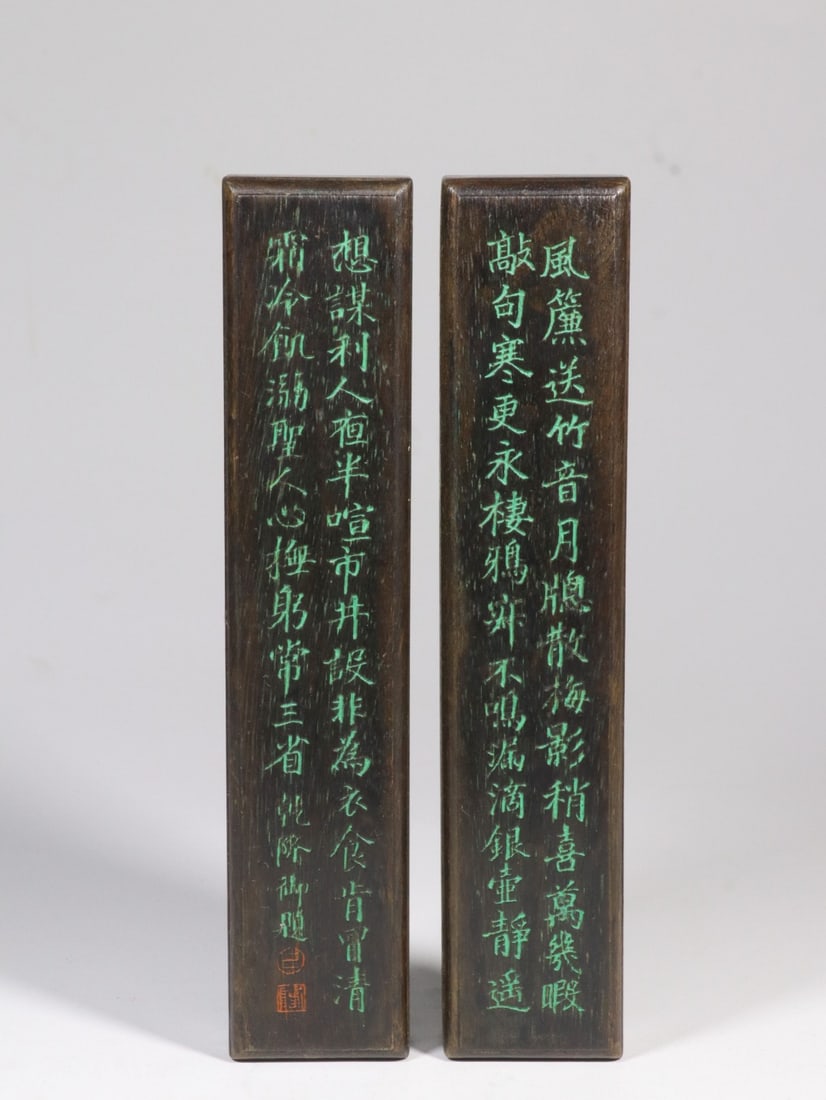 風簾送竹音月牕散梅影稍喜萬幾暇
敲句寒更永棲鴉寂不鳴漏滴銀壺靜遥
想謀利人亱半喧市井設非為衣食肯曽清
霜冷飢溺聖人心撫躬常三省 乾隆御題